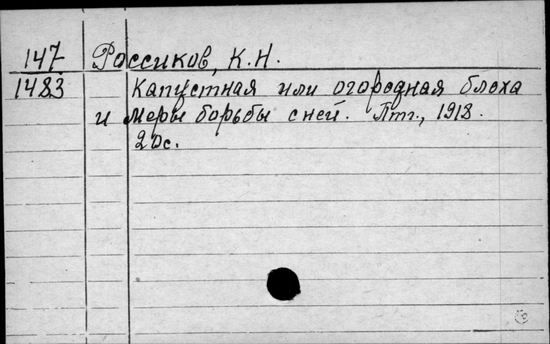 147 Россиков, К.Н.
1483 Капустная или огородная блоха
и меры борьбы с ней. Птг., 1918.
20с.